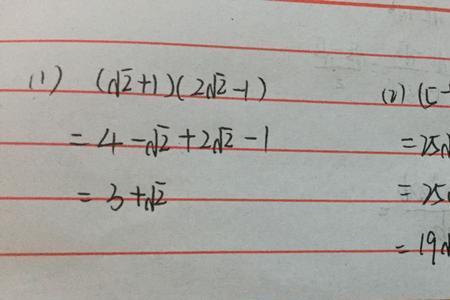 (1) (√2+1)(2√2-1)
=4-√2+2√2-1
=3+√2
(2) (5-
=25√
=25
=19√